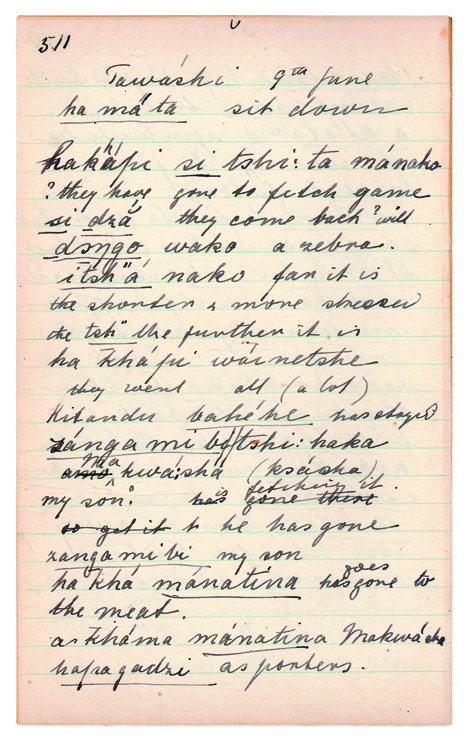 511
Tawáshi 9th June
ha máta sit down
hakápi si tshi: ta mánako
? they have gone to fetch game
si dzá they come back ? will
dongo wako a zebra.
itsh"á nako far it is
the shorter & more stressed
the tsh" the further it is
ha khápi wainetshe
they went all (a lot)
Kitandu bahéhe has stayed
zánga mi bi tshi: haka
ma kwá:shá (ksásha)
my son: is fetching it
he has gone
zanga mi bi my son
ha khá mánatina goes has gone to
the meat.
a: kháma mánatina Makwácha
hapagadzi as porters.